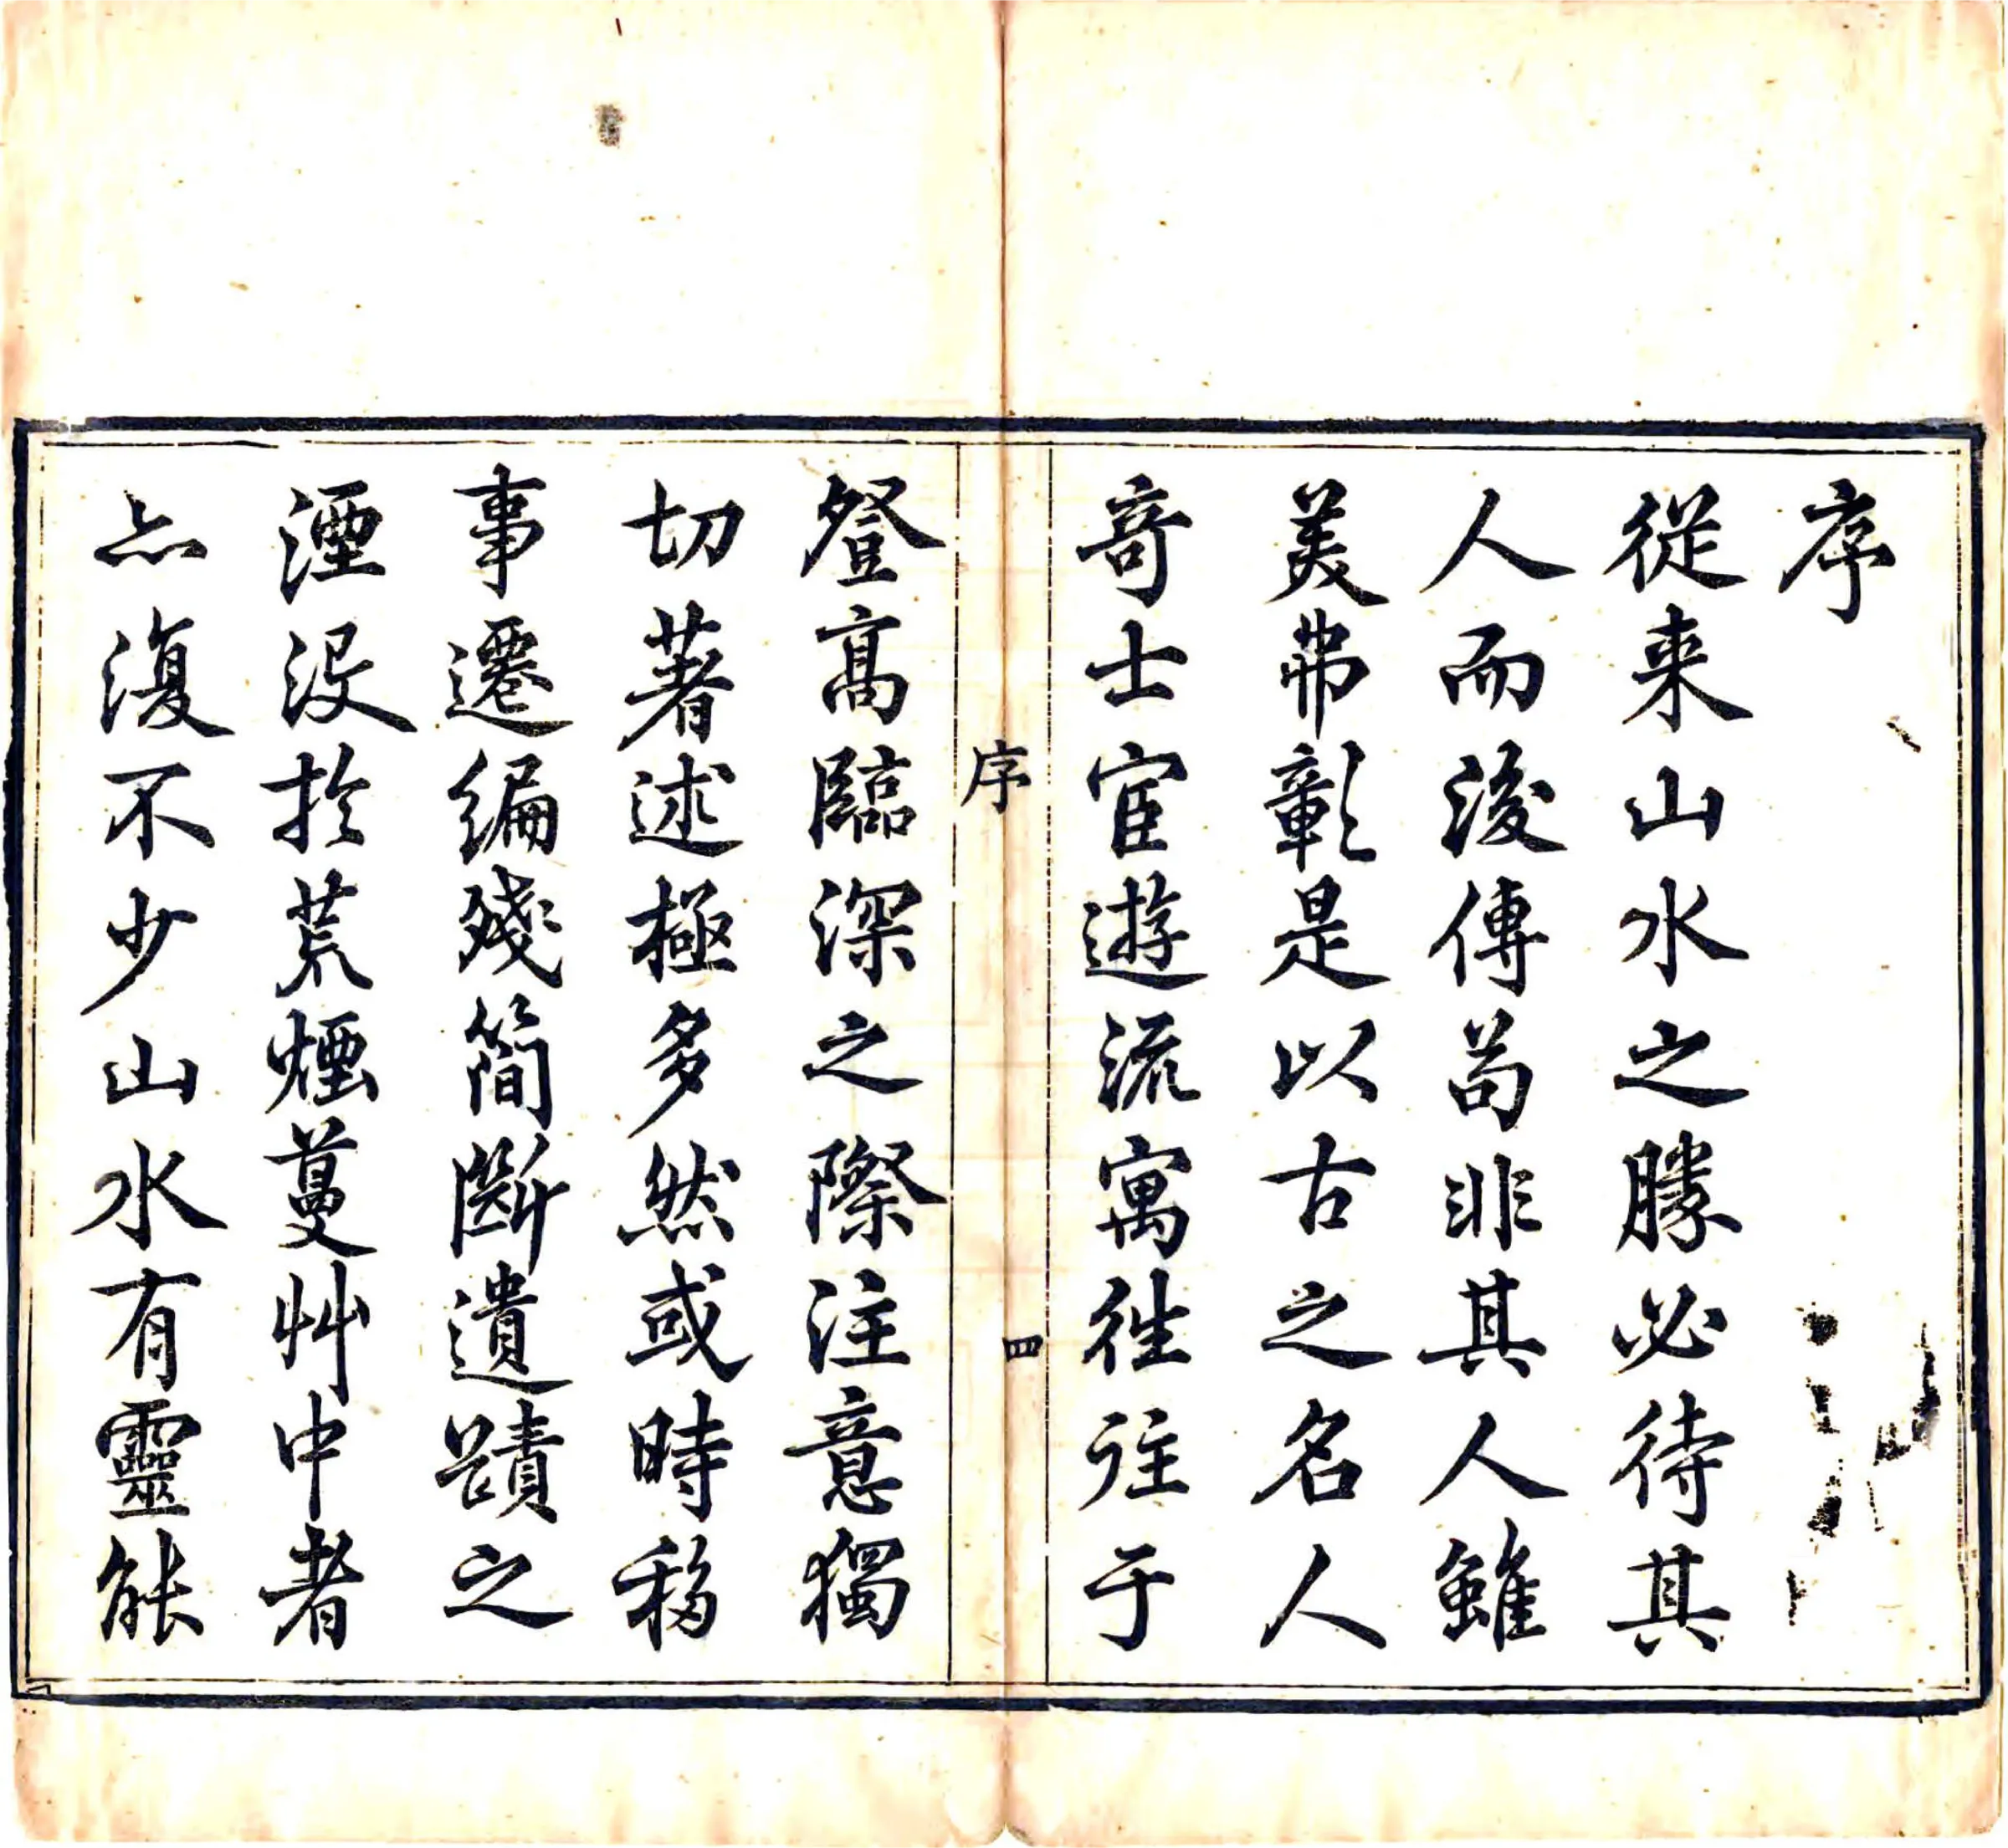 序
從来山水之勝必待其
人而後傳茍非其人雖
美弗彰是以古之名人
竒士宦遊流寓徃往于
序
四
登髙臨深之際注意獨
切著述極多然或時移
事遷編殘簡斷遺蹟之
湮没扵荒煙蔓艸中者
亦復不少山水有靈能